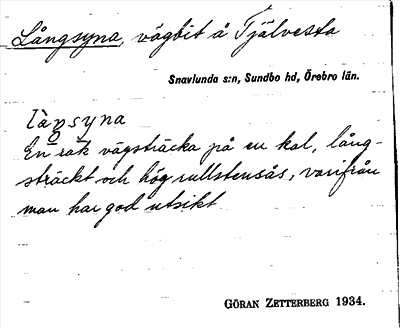 Långsyna, vägbit å Tjälvesta
Snavlunda s:n, Sundbo hd, Örebro län.
låŋsyna
En rak vägsträcka på en kal, lång-
sträckt och hög rullstensås, varifrån
man har god utsikt
GÖRAN ZETTERBERG 1934.